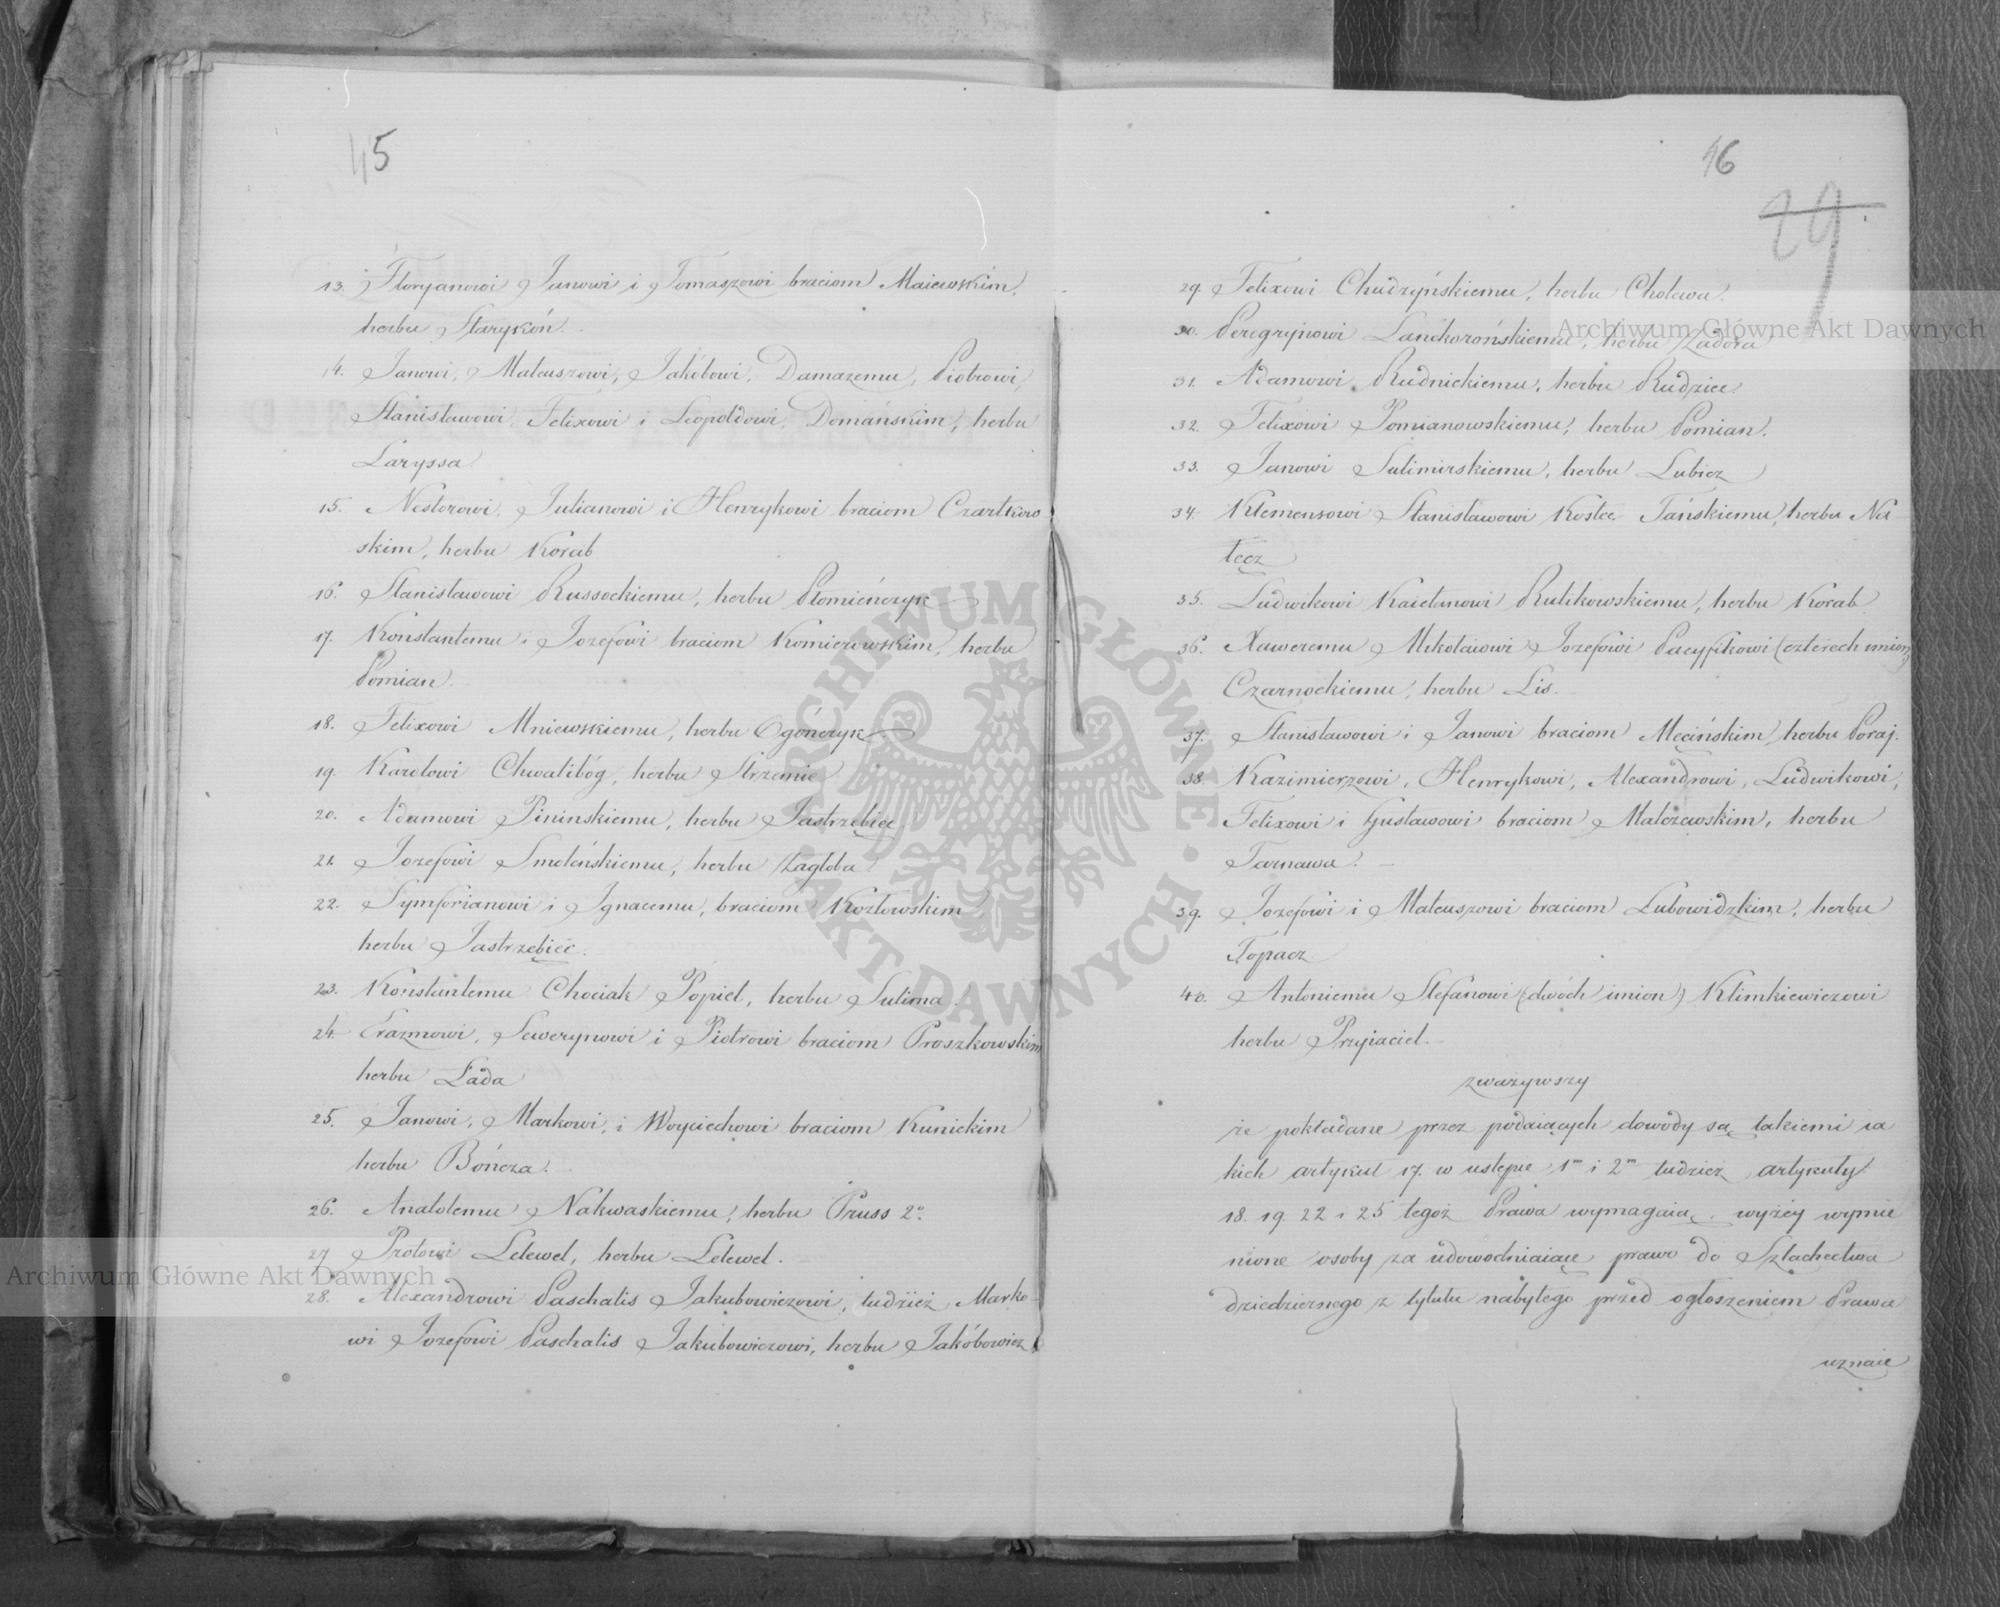 45
13. Floryanowi Janowi i Tomaszowi braciom Maiewskim,
herbu Starykoń.
14. Janowi, Mateuszowi, Jakóbowi, Damazemu, Piotrowi,
Stanisławowi, Felixowi i Leopoldowi Domańskim, herbu
Laryssa.
15. Nestorowi, Julianowi i Henrykowi braciom Czartkow
skim, herbu Korab
16. Stanisławowi Russockiemu, herbu Płomieńczyk
17. Konstantemu i Jozefowi braciom Komierowskim, herbu
Pomian.
18. Felixowi Mniewskiemu, herbu Ogończyk
19. Karolowi Chwalibóg, herbu Strzemie
20. Adamowi Pininskiemu, herbu Jastrzębiec
21. Jozefowi Smoleńskiemu, herbu Zagłoba.
22. Symforianowi i Ignacemu, braciom Kozłowskim
herbu Jastrzębiec.
23. Konstantemu Chociak Popiel, herbu Sulima.
24. Erazmowi, Sewerynowi i Piotrowi braciom Proszkowskim
herbu Łada
25. Janowi, Markowi, i Woyciechowi braciom Kunickim
herbu Bończa.
26. Anatolemu Nakwaskiemu, herbu Pruss 2º.
27. Protowi Lelewel, herbu Lelewel.
28. Alexandrowi Paschalis Jakubowiczowi, tudzież Marko-
wi Jozefowi Paschalis Jakubowiczowi, herbu Jakóbowicz
46
29
29. Felixowi Chudzyńskiemu, herbu Cholewa.
30. Peregrynowi Lanckorońskiemu, herbu Zadora
31. Adamowi Rudnickiemu, herbu Rudzice
32. Felixowi Pomianowskiemu, herbu Pomian.
33. Janowi Sulimirskiemu, herbu Lubicz
34. Klemensowi Stanisławowi Kostce Tańskiemu, herbu Na-
łęcz
35. Ludwikowi Kaietanowi Rulikowskiemu, herbu Korab.
36. Xaweremu Mikołaiowi Jozefowi Pacyfikowi (czterech imion)
Czarnockiemu, herbu Lis.
37. Stanisławowi i Janowi braciom Męcińskim, herbu Poraj.
38. Kazimierzowi, Henrykowi, Alexandrowi, Ludwikowi,
Felixowi i Gustawowi braciom Malczewskim, herbu
Tarnawa.
39. Jozefowi i Mateuszowi braciom Lubowidzkim, herbu
Topacz
40. Antoniemu Stefanowi (dwóch imion) Klimkiewiczowi
herbu Przyiaciel.
zważywszy
że pokładane przez podaiących dowody są takiemi ia
kich artykuł 17. w ustępie 1m i 2m tudzież artykuły
18. 19. 22 i 25 tegoż Prawa wymagaią, wyżéy wymie
nione osoby za udowodniaiące prawo do Szlachectwa
dziedzicznego z tytułu nabytego przed ogłoszeniem Prawa
uznaie
Archiwum Główne Akt Dawnych
Archiwum Główne Akt Dawnych
ARCHIWUM GŁÓWNE • AKT DAWNYCH •